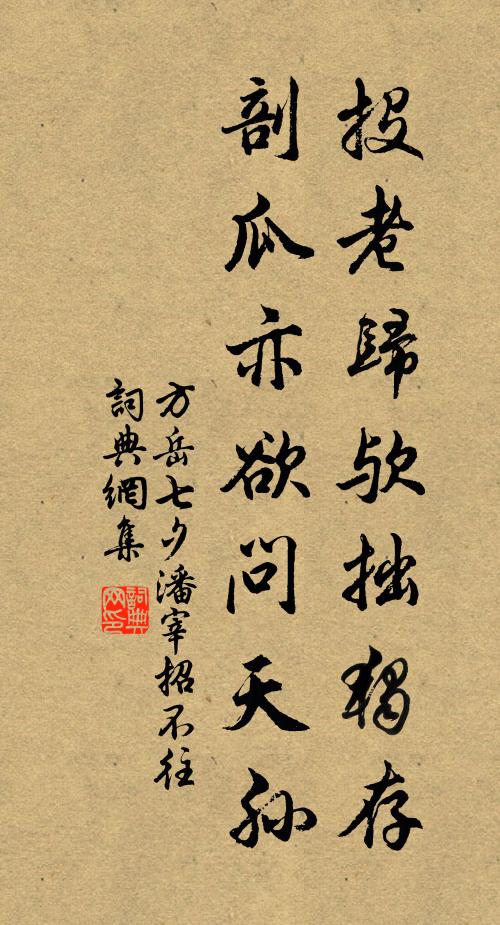 投老歸歟拙獨存
剖瓜亦欲問天孫
方岳七夕潘宰招不往
詞典網集
詞典網印